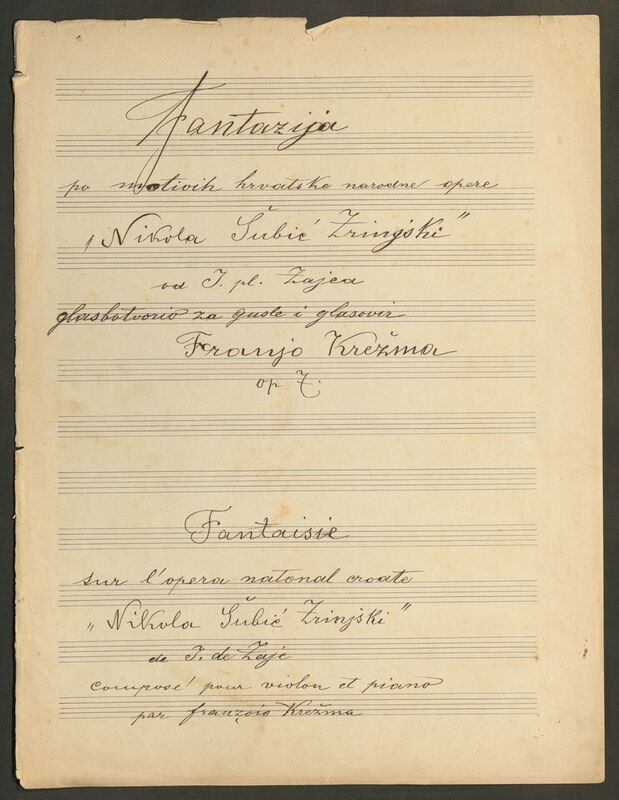 Fantazija
po motivih hrvatske narodne opere
„Nikola Šubić Zrinjski"
od I. pl. Zajca
glasbotvorio za gusle i glasovir
Franjo Krežma
op 7.
Fantaisie
sur l'opera natonal croate
„Nikola Šubić Zrinjski"
de I. de Zajc
composé pour violon et piano
par françois Krežma